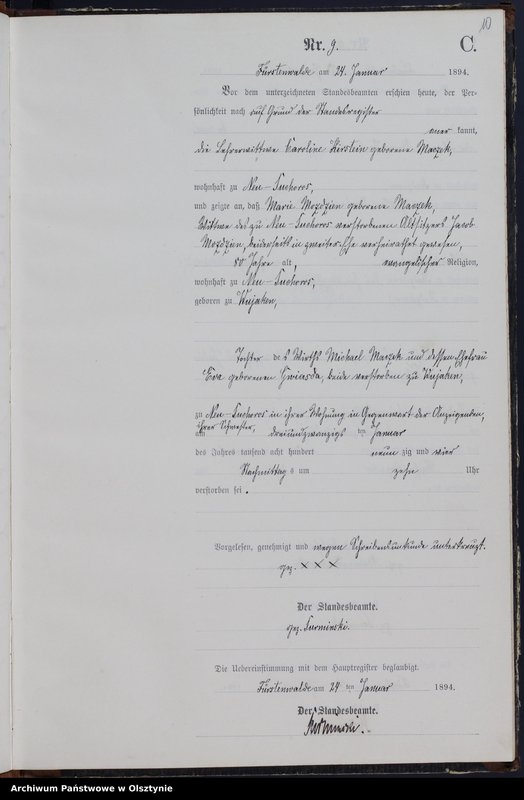 10
Nr. 9.
C.
Fürstenwalde am 24. Januar 1894.
Vor dem unterzeichneten Standesbeamten erschien heute, der Per-
sönlichkeit nach auf Grund der Standesregister
aner kannt,
die Lehrerwittwe Caroline Kerstein geborene Maczek,
wohnhaft zu Neu-Suchoros,
und zeigte an, daß Marie Mozdzian geborene Maczek,
Wittwe des zu Neu-Suchoros verstorbenen Altsitzers Jacob
Mozdzian, beiderseits in zweiter Ehe verheirathet gewesen,
80 Jahre alt, evangelischer Religion,
wohnhaft zu Neu-Suchoros,
geboren zu Wujaken,
Tochter des Wirths Michael Maczek und dessen Ehefrau
Eva geborenen Gwiasda, beide verstorben zu Wujaken,
zu Neu-Suchoros in ihrer Wohnung in Gegenwart der Anzeigenden,
ihrer Schwester,
am dreiundzwanzigs ten Januar
des Jahres tausend acht hundert neun zig und vier
Nachmittag s um zehn Uhr
verstorben sei.
Vorgelesen, genehmigt und wegen Schreibensunkunde unterkreuzt.
gez. XXX
Der Standesbeamte.
gez. Surminski.
Die Uebereinstimmung mit dem Hauptregister beglaubigt.
Fürstenwalde am 24 ten Januar 1894.
Der Standesbeamte.
Surminski.
Archiwum Państwowe w Olsztynie